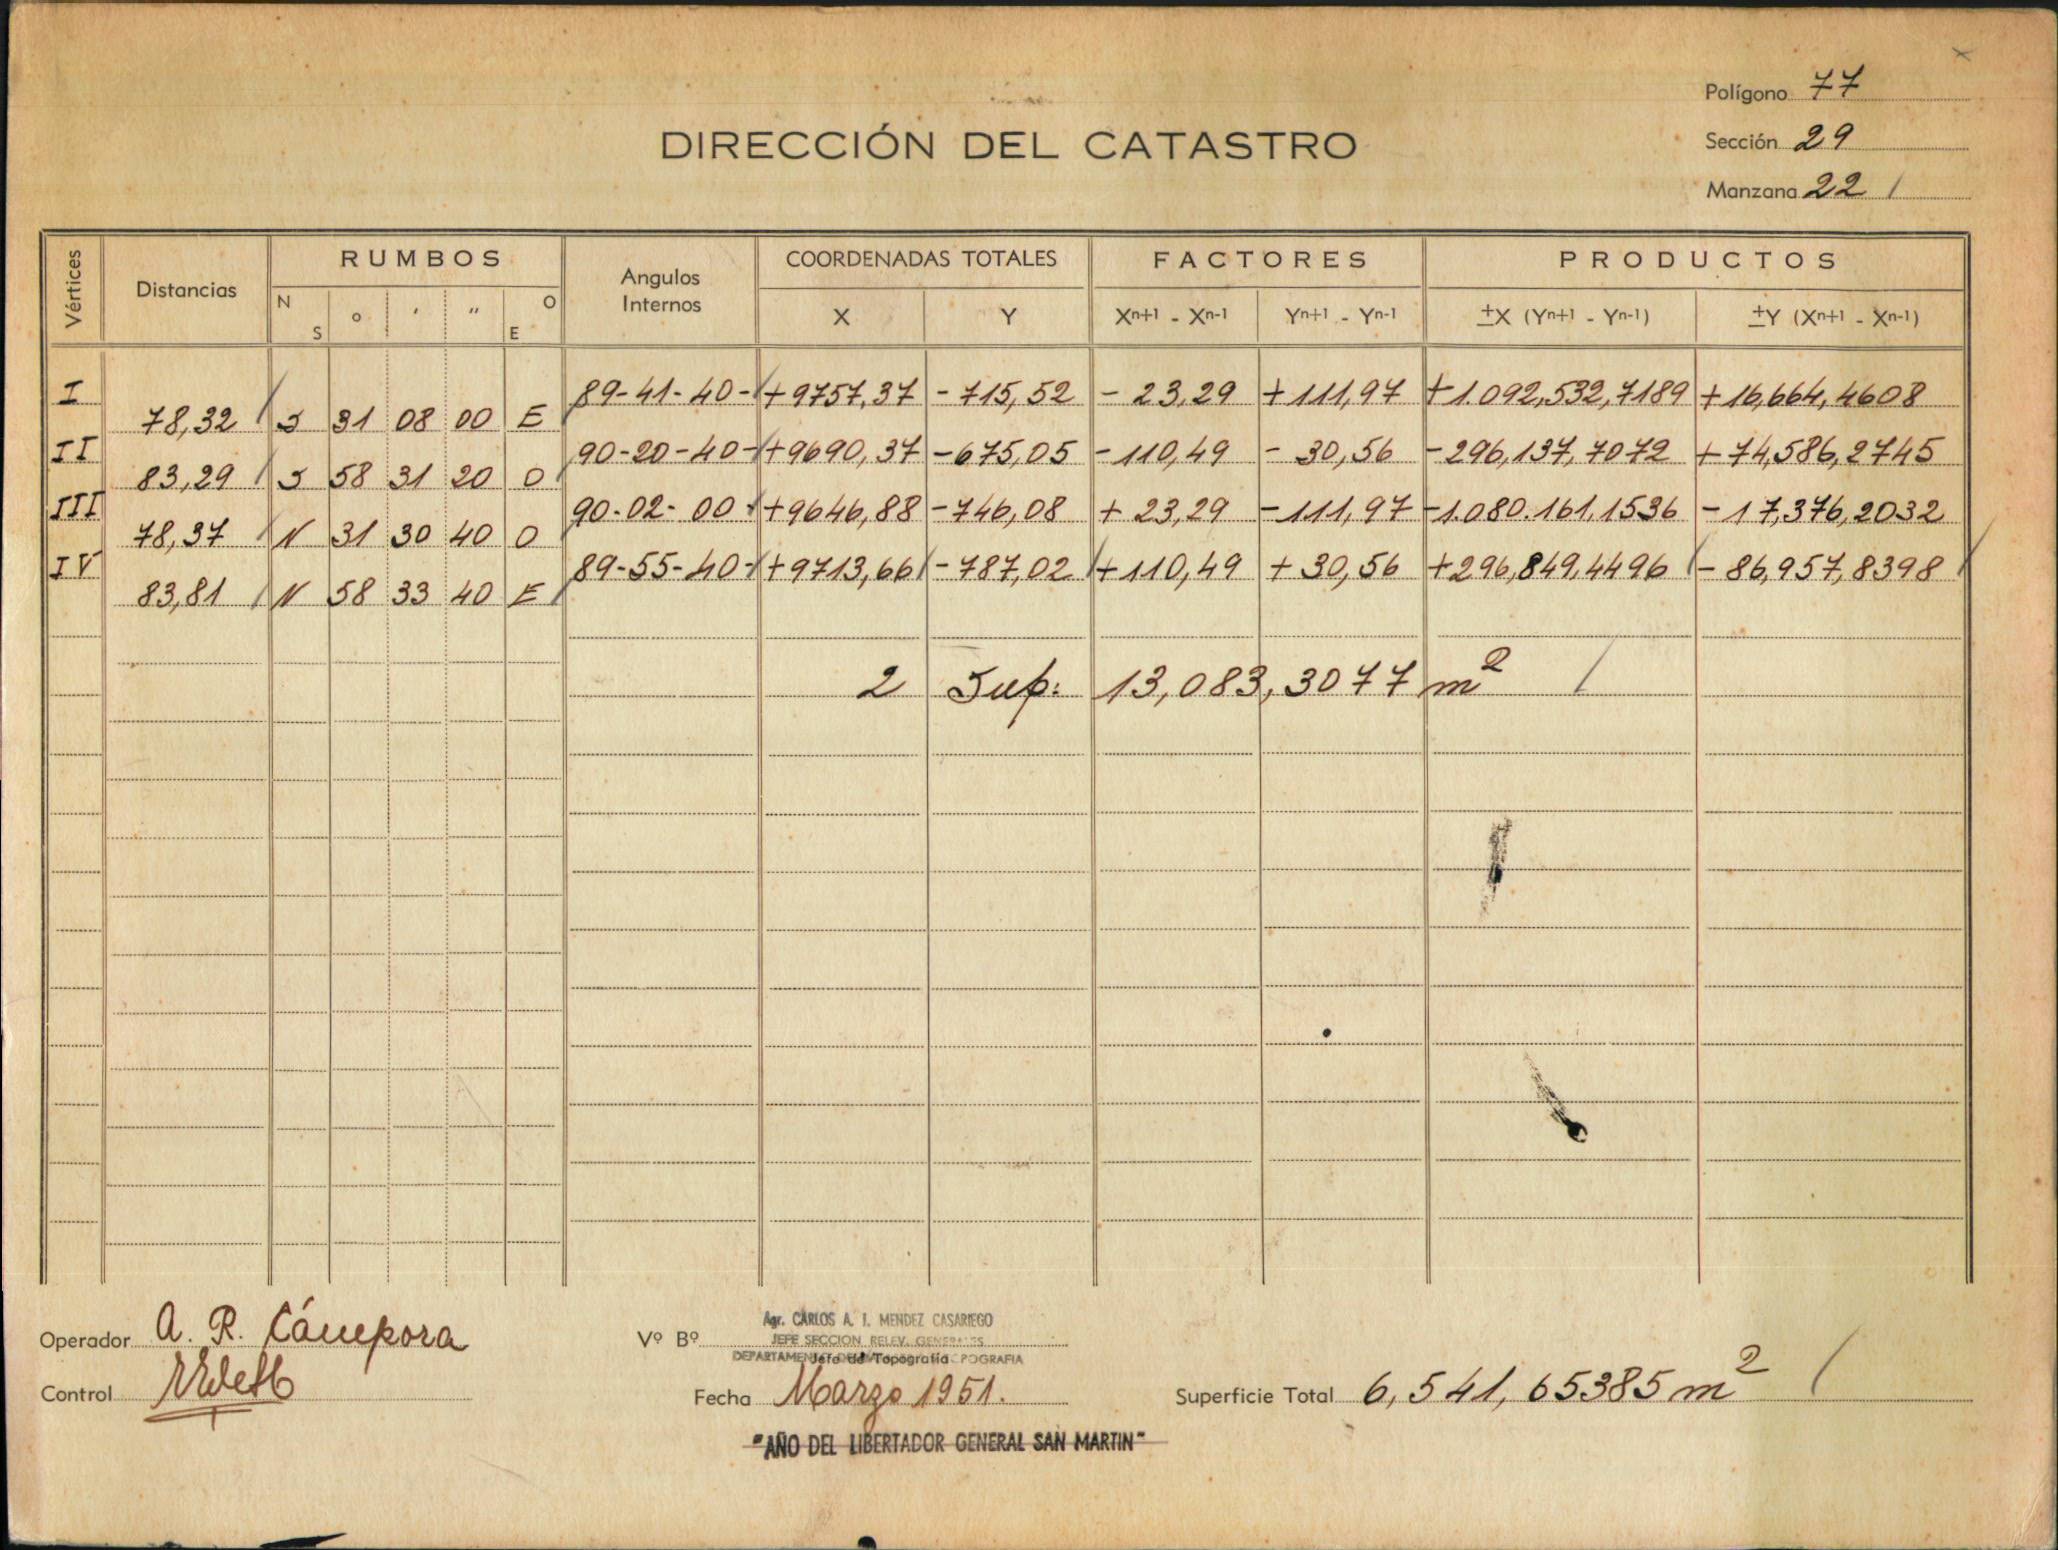 Polígono 77
DIRECCIÓN DEL CATASTRO
Sección 29
Manzana 22
Vértices Distancias RUMBOS Angulos Internos COORDENADAS TOTALES FACTORES PRODUCTOS
N S ° ' " O E X Y Xn+1 - Xn-1 Yn+1 - Yn-1 ±X (Yn+1 - Yn-1) ±Y (Xn+1 - Xn-1)
I 89-41-40- +9757,37 -715,52 - 23,29 +111,97 +1.092,532,7189 +16,664,4608
78,32 S 31 08 00 E
II 90-20-40- +9690,37 -675,05 -110,49 - 30,56 -296,137,7072 +74,586,2745
83,29 S 58 31 20 O
III 90-02-00 +9646,88 -746,08 + 23,29 -111,97 -1.080.161,1536 -17,376,2032
78,37 N 31 30 40 O
IV 89-55-40- +9713,66 -787,02 +110,49 + 30,56 +296,849,4496 -86,957,8398
83,81 N 58 33 40 E
2 Sup: 13,083,3077 m²
Operador A. R. Cámpora
Vº Bº Agr. CARLOS A. I. MENDEZ CASARIEGO
JEFE SECCION RELEV. GENERALES
Jefe de Topografía
Control
Fecha Marzo 1951.
Superficie Total 6,541,65385 m²
"AÑO DEL LIBERTADOR GENERAL SAN MARTIN"